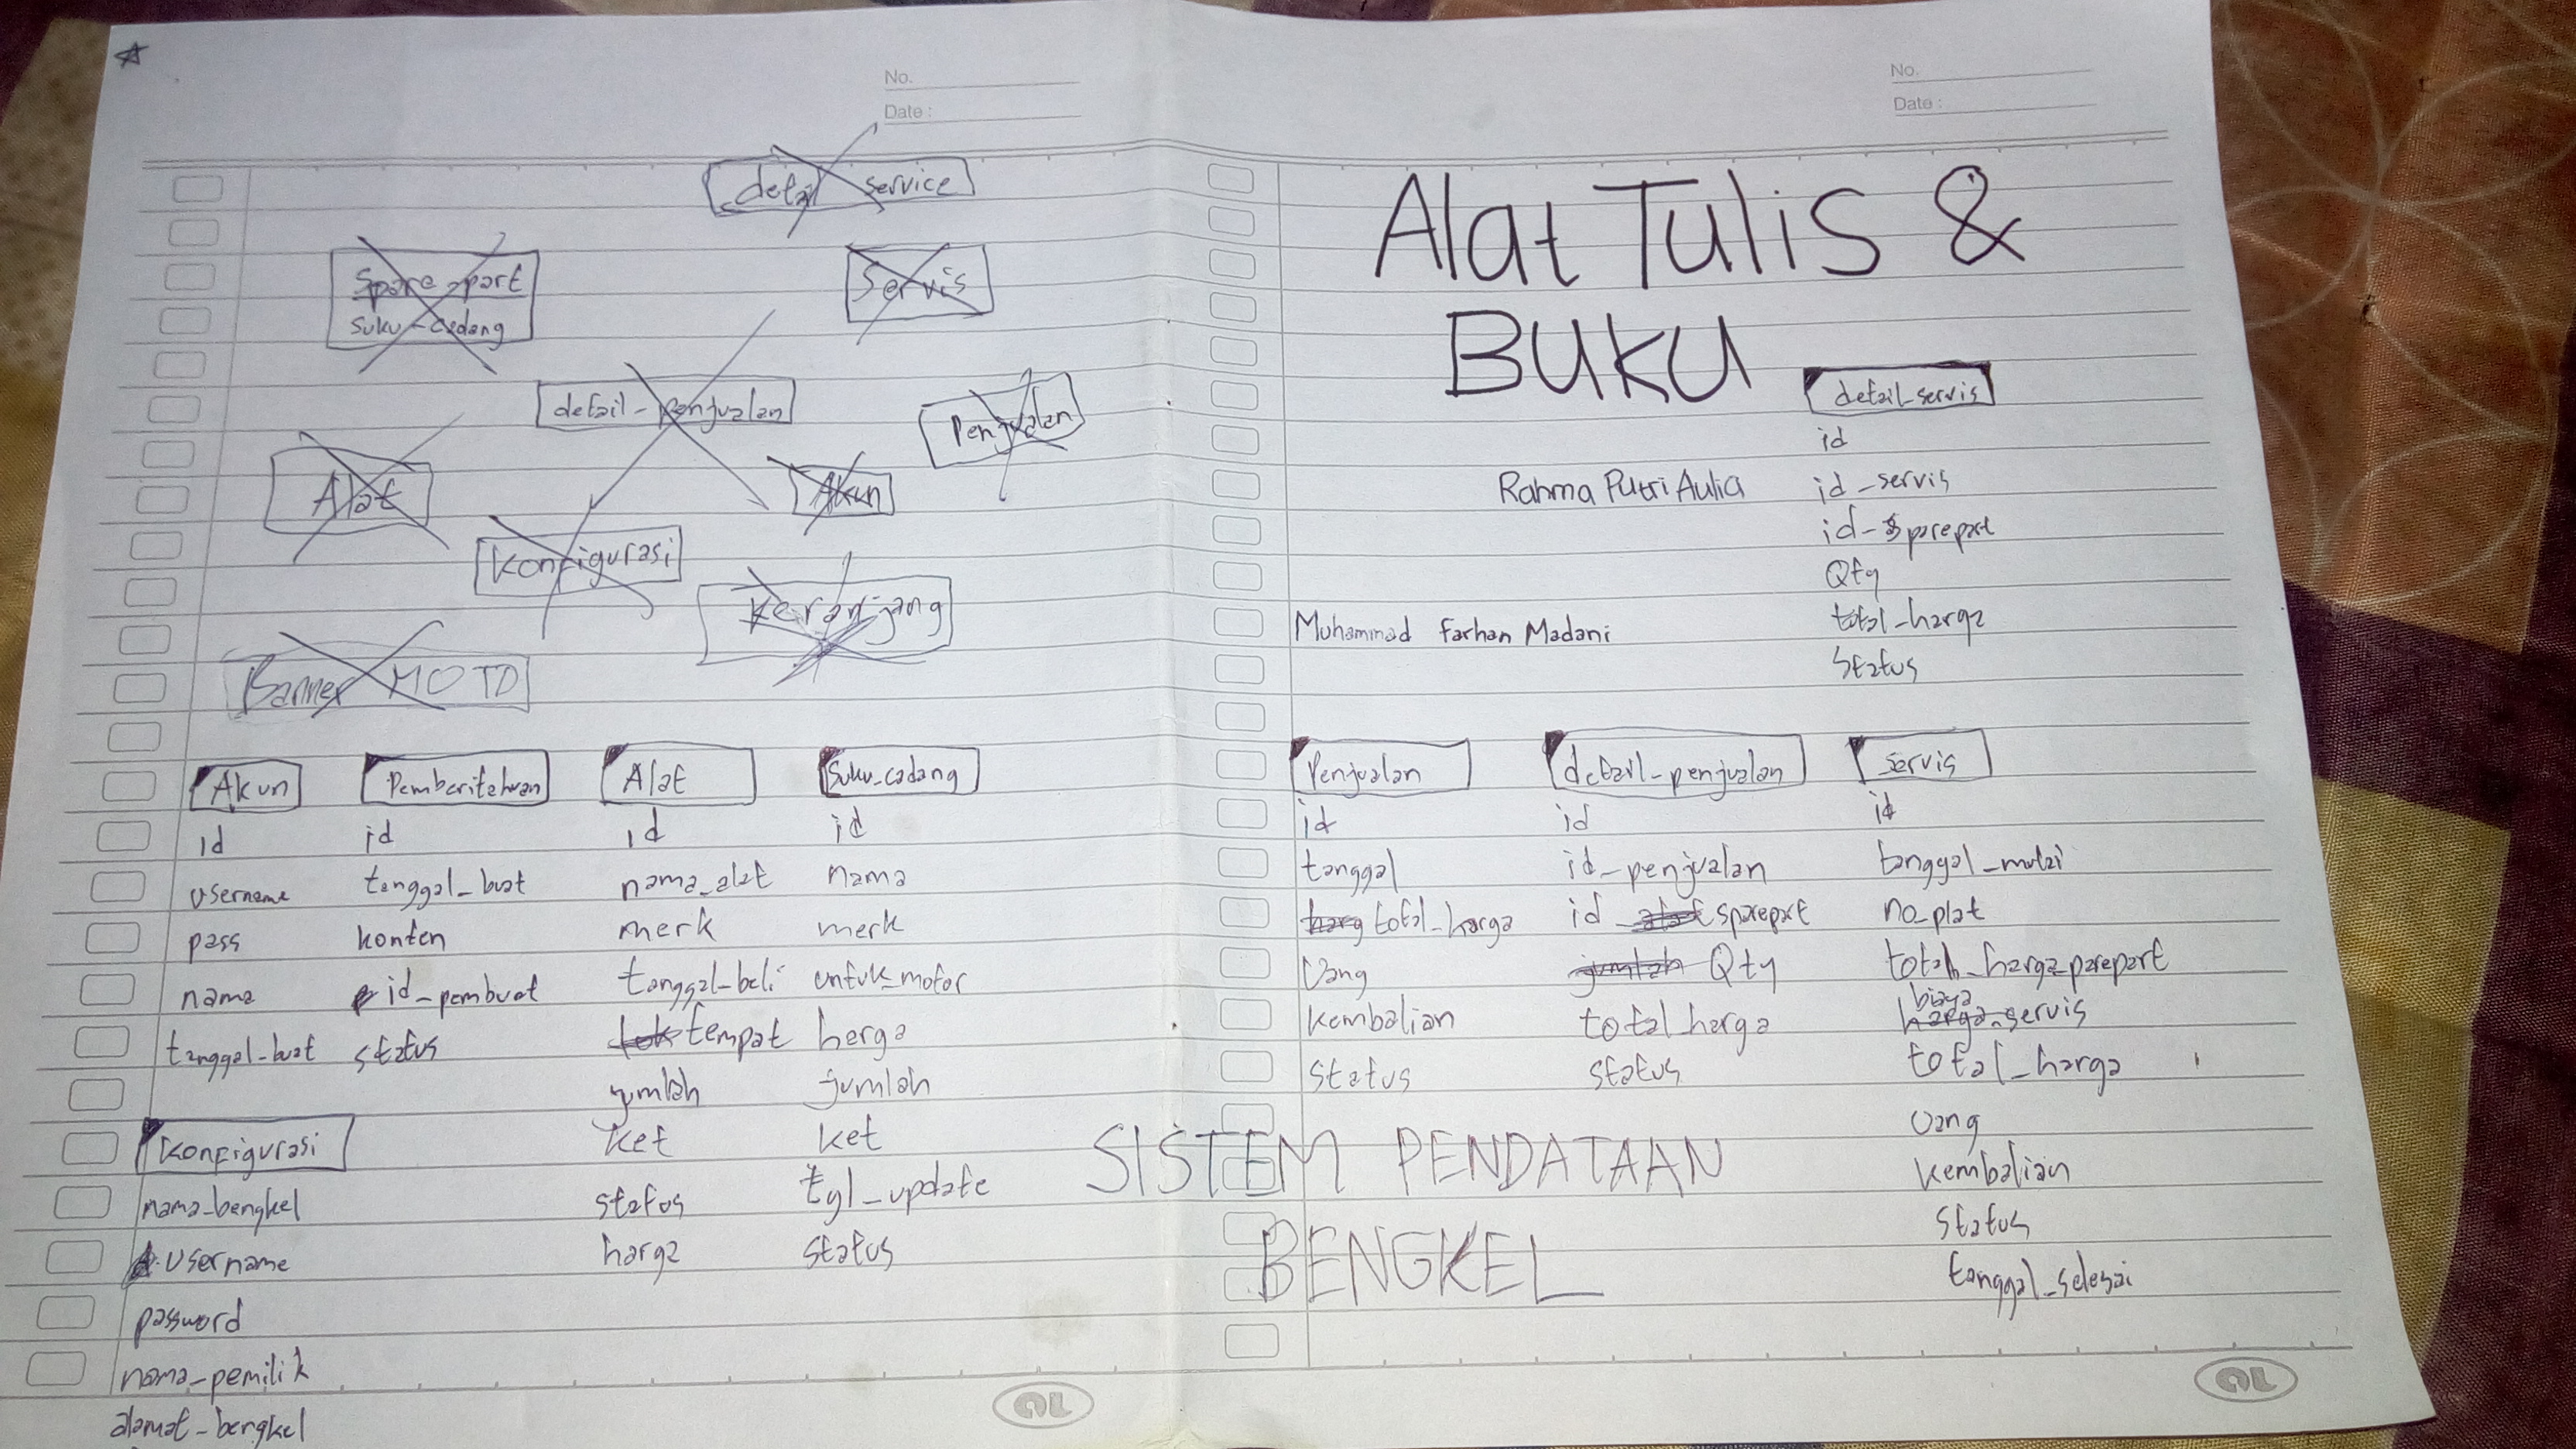 No.
Date :
detail service
Spare-part
suku-cadang
Servis
detail-penjualan
Penjualan
Alat
Akun
Konfigurasi
Keranjang
Banner MOTD
Akun
id
username
pass
nama
tanggal_buat
Pemberitahuan
id
tanggal_buat
konten
id_pembuat
status
Alat
id
nama_alat
merk
tanggal_beli
tempat
jumlah
ket
status
harga
Suku_cadang
id
nama
merk
untuk_motor
harga
jumlah
ket
tgl_update
status
Konfigurasi
nama_bengkel
username
password
nama_pemilik
alamat_bengkel
No.
Date :
Alat Tulis &
BUKU
Rahma Putri Aulia
Muhammad Farhan Madani
detail_servis
id
id_servis
id_sparepart
Qty
total_harga
status
Penjualan
id
tanggal
harg total_harga
Uang
Kembalian
Status
detail_penjualan
id
id_penjualan
id_alat sparepart
jumlah Qty
total harga
status
servis
id
tanggal_mulai
no_plat
total_hargaparepart
biaya
harga_servis
total_harga
Uang
Kembalian
Status
tanggal_selesai
SISTEM PENDATAAN
BENGKEL
OL
OL